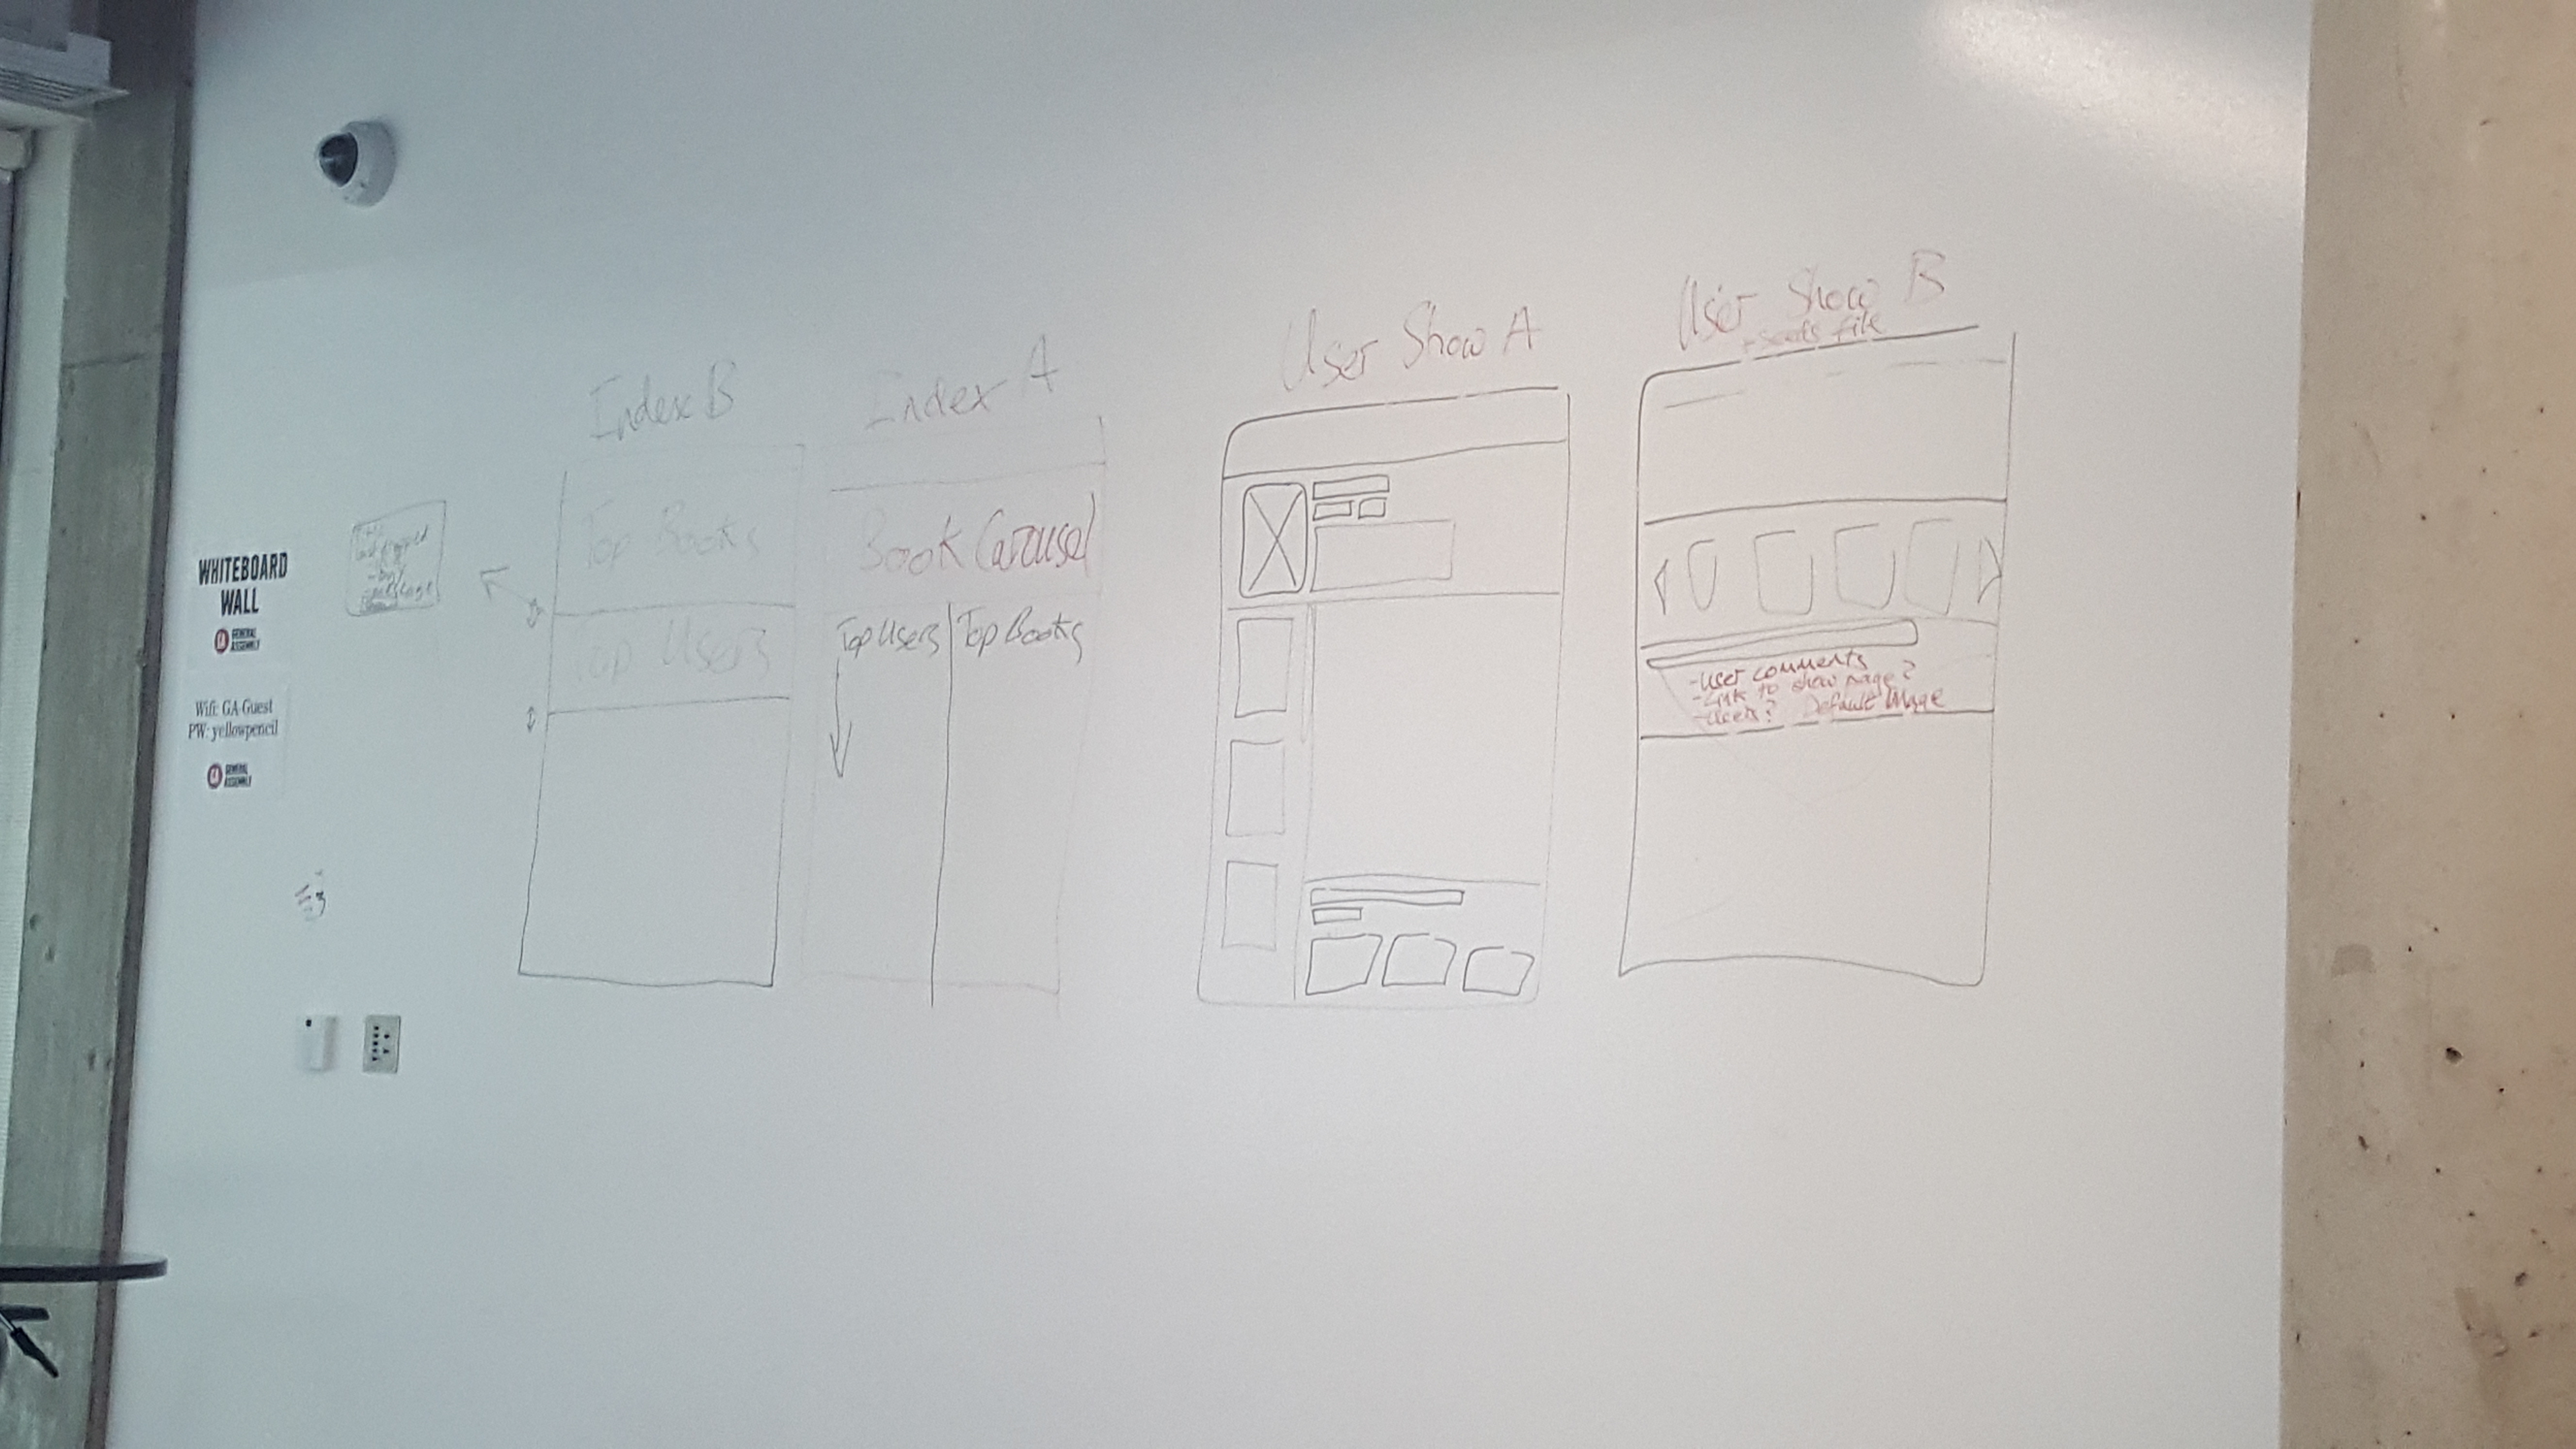 WHITEBOARD
WALL
GENERAL
ASSEMBLY
Wifi: GA-Guest
PW: yellowpencil
GENERAL
ASSEMBLY
Index B
Top Books
Top Users
Index A
Book Carousel
Top Users
Top Books
User Show A
User Show B
+ seeds file
- User comments
- Link to show page?
- Users? Default Image